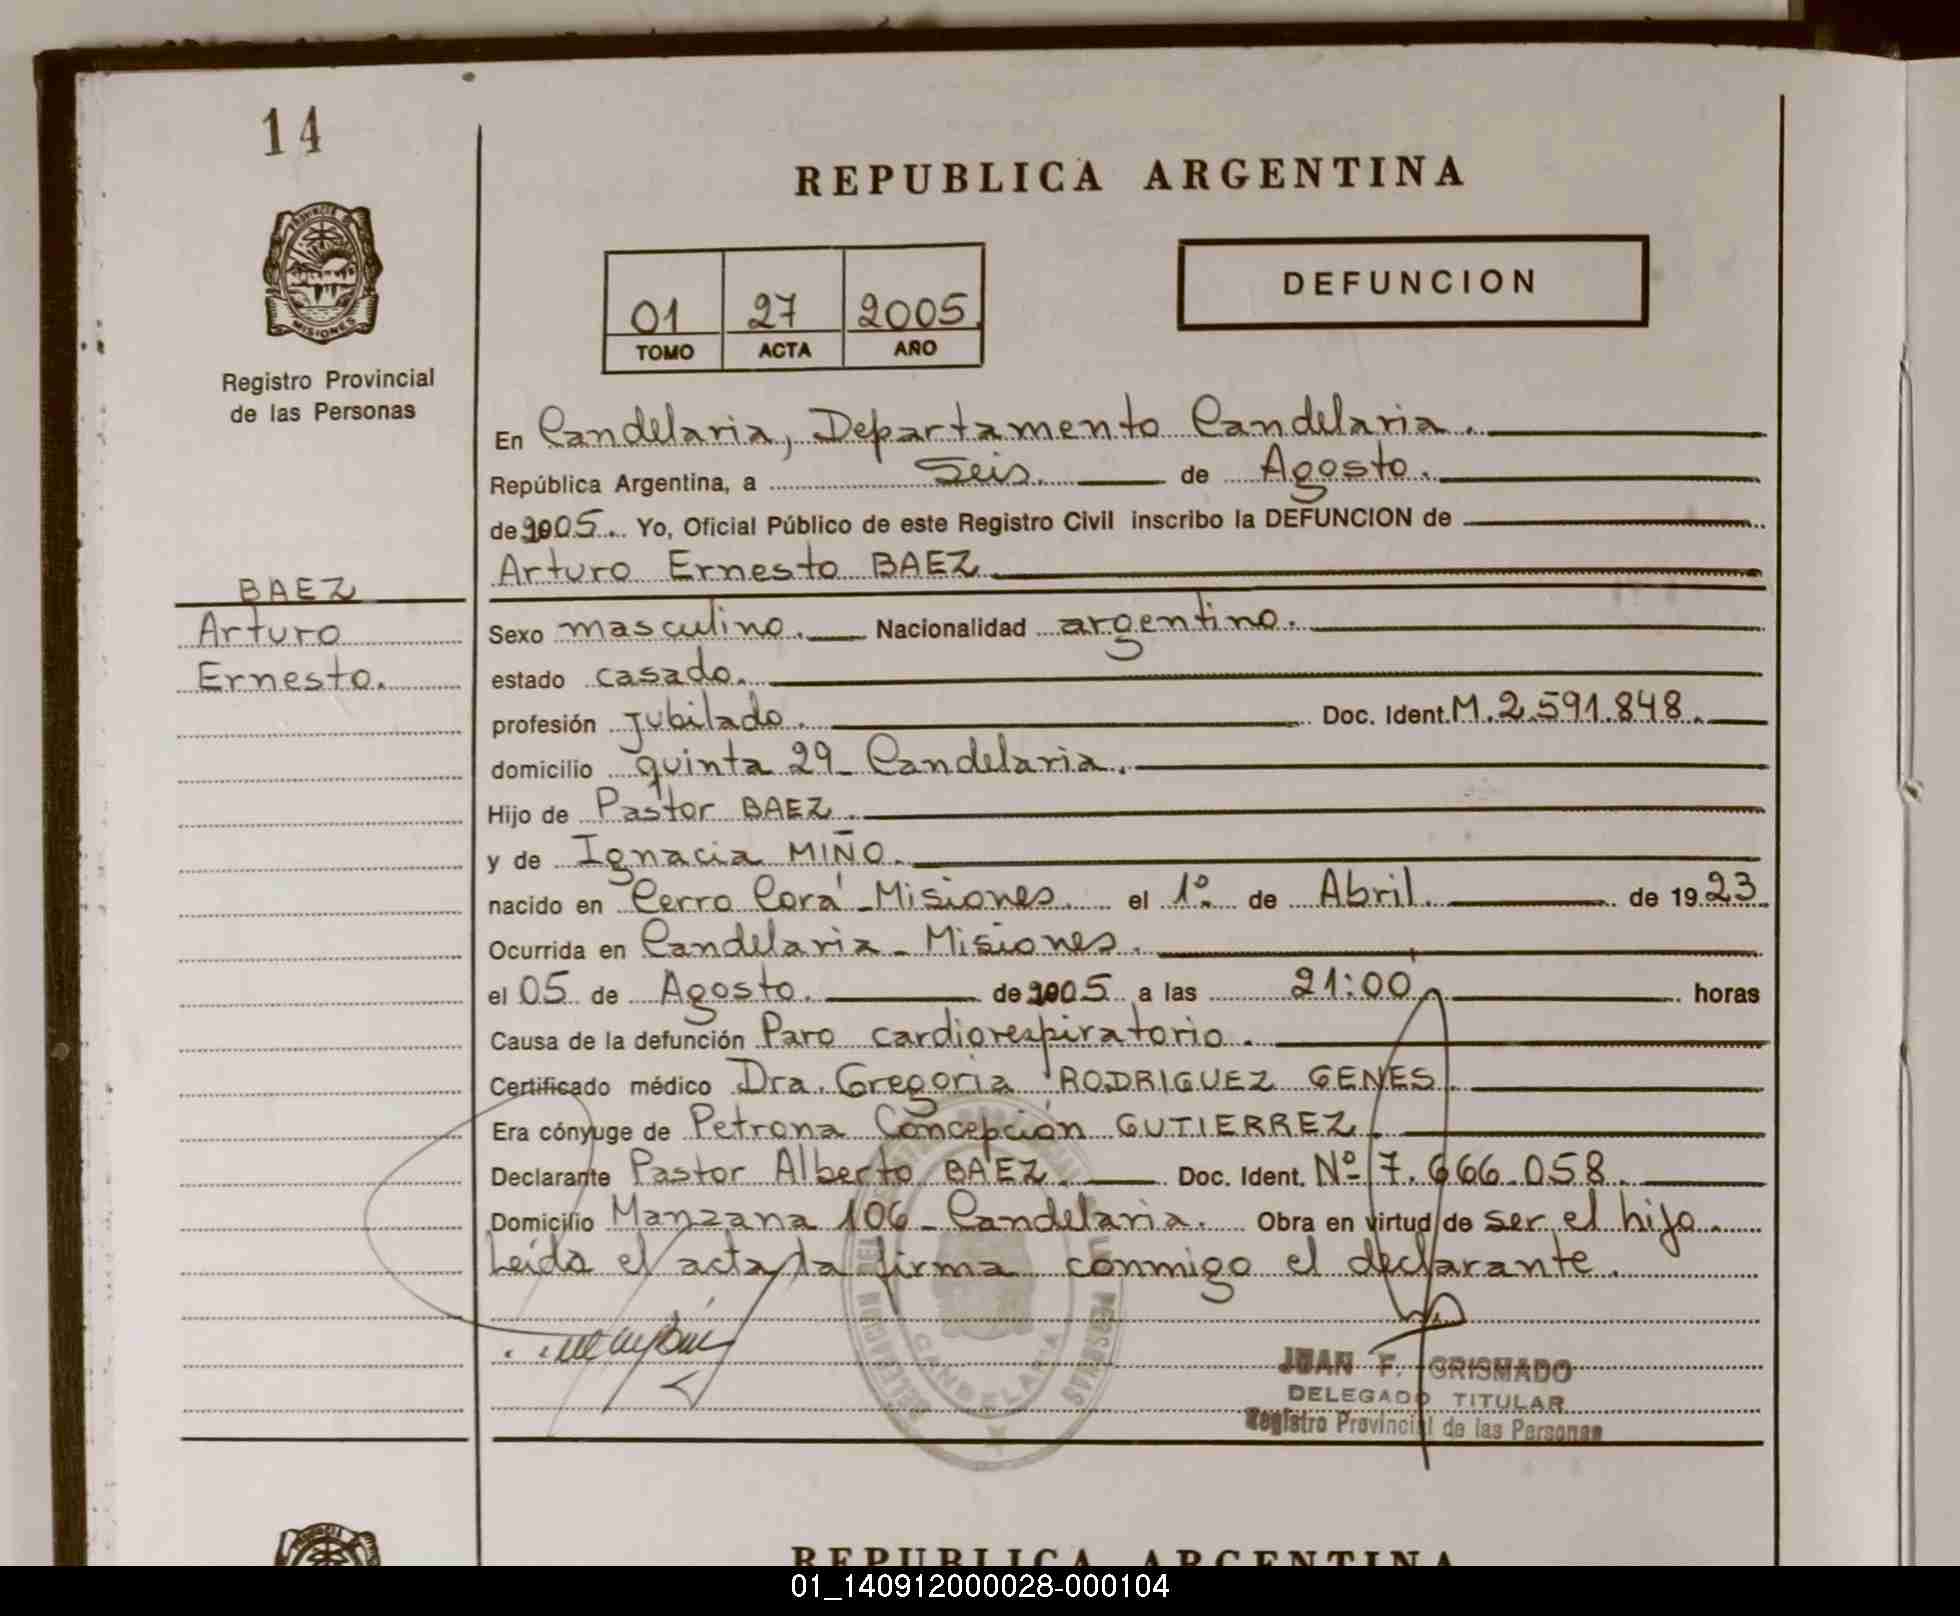 14
REPUBLICA ARGENTINA
PROVINCIA DE
MISIONES
Registro Provincial
de las Personas
01 27 2005
TOMO ACTA AÑO
DEFUNCION
En Candelaria, Departamento Candelaria.
República Argentina, a Seis. de Agosto.
de 2005. Yo, Oficial Público de este Registro Civil inscribo la DEFUNCION de
Arturo Ernesto BAEZ
BAEZ
Arturo
Ernesto.
Sexo masculino. Nacionalidad argentino.
estado casado.
profesión jubilado. Doc. Ident. M.2.591.848.
domicilio quinta 29 - Candelaria.
Hijo de Pastor BAEZ.
y de Ignacia MIÑO.
nacido en Cerro Corá - Misiones. el 1º. de Abril. de 1923.
Ocurrida en Candelaria - Misiones.
el 05 de Agosto. de 2005 a las 21:00 horas
Causa de la defunción Paro cardiorespiratorio.
Certificado médico Dra. Gregoria RODRIGUEZ GENES.
Era cónyuge de Petrona Concepción GUTIERREZ.
Declarante Pastor Alberto BAEZ. Doc. Ident. Nº 7.666.058.
Domicilio Manzana 106 - Candelaria. Obra en virtud de ser el hijo.
Leída el acta, la firma conmigo el declarante.
DELEGACION
CANDELARIA
PERSONAS
JUAN F. GRISMADO
DELEGADO TITULAR
Registro Provincial de las Personas
REPUBLICA ARGENTINA
01_140912000028-000104